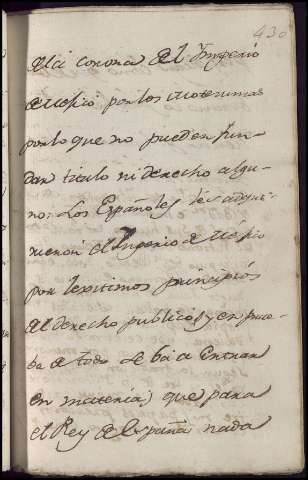 430
de la corona del Imperio
de Mexico por los Motezumas
por lo que no pueden fun-
dar titulo ni derecho algu-
no: Los Españoles les adqui-
rieron el Imperio de Mexico
por lexitimos principios
del derecho publico, y en prue-
ba de todo se bá a entrar
en materia, que para
el Rey de España nada